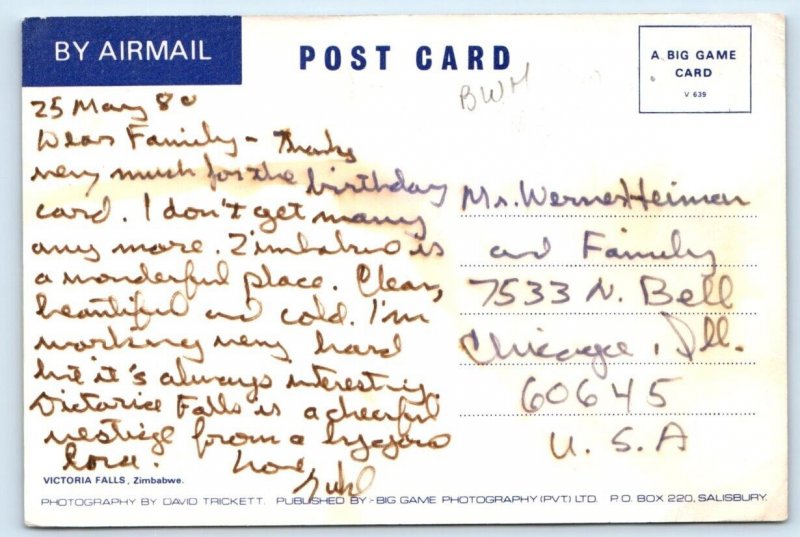 BY AIRMAIL
POST CARD
A BIG GAME
CARD
V 639
BWM
25 May 80
Dear Family - Thanks
very much for the birthday
card. I don't get many
any more. Zimbabwe is
a wonderful place. Clear,
beautiful and cold. I'm
working very hard
but it's always interesting.
Victoria Falls is a cheerful
vestige from a
Love
Mr. Werner Heiman
and Family
7533 N. Bell
Chicago, Ill.
60645
U. S. A
VICTORIA FALLS, Zimbabwe.
PHOTOGRAPHY BY DAVID TRICKETT. PUBLISHED BY:- BIG GAME PHOTOGRAPHY (PVT) LTD. P.O. BOX 220, SALISBURY.